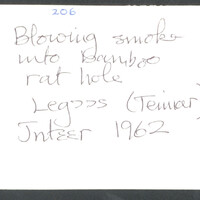 206
Blowing smoke
into Bamboo
rat hole
Legɔɔs (Teimar)
Jntɛɛr 1962